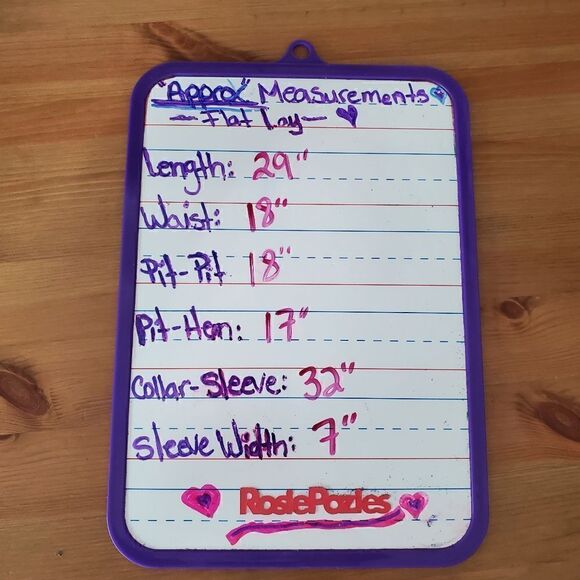 "Approx" Measurements
-Flat Lay-
Length: 29"
Waist: 18"
Pit-Pit 18"
Pit-Hem: 17"
Collar-Sleeve: 32"
Sleeve Width: 7"
RosiePozies